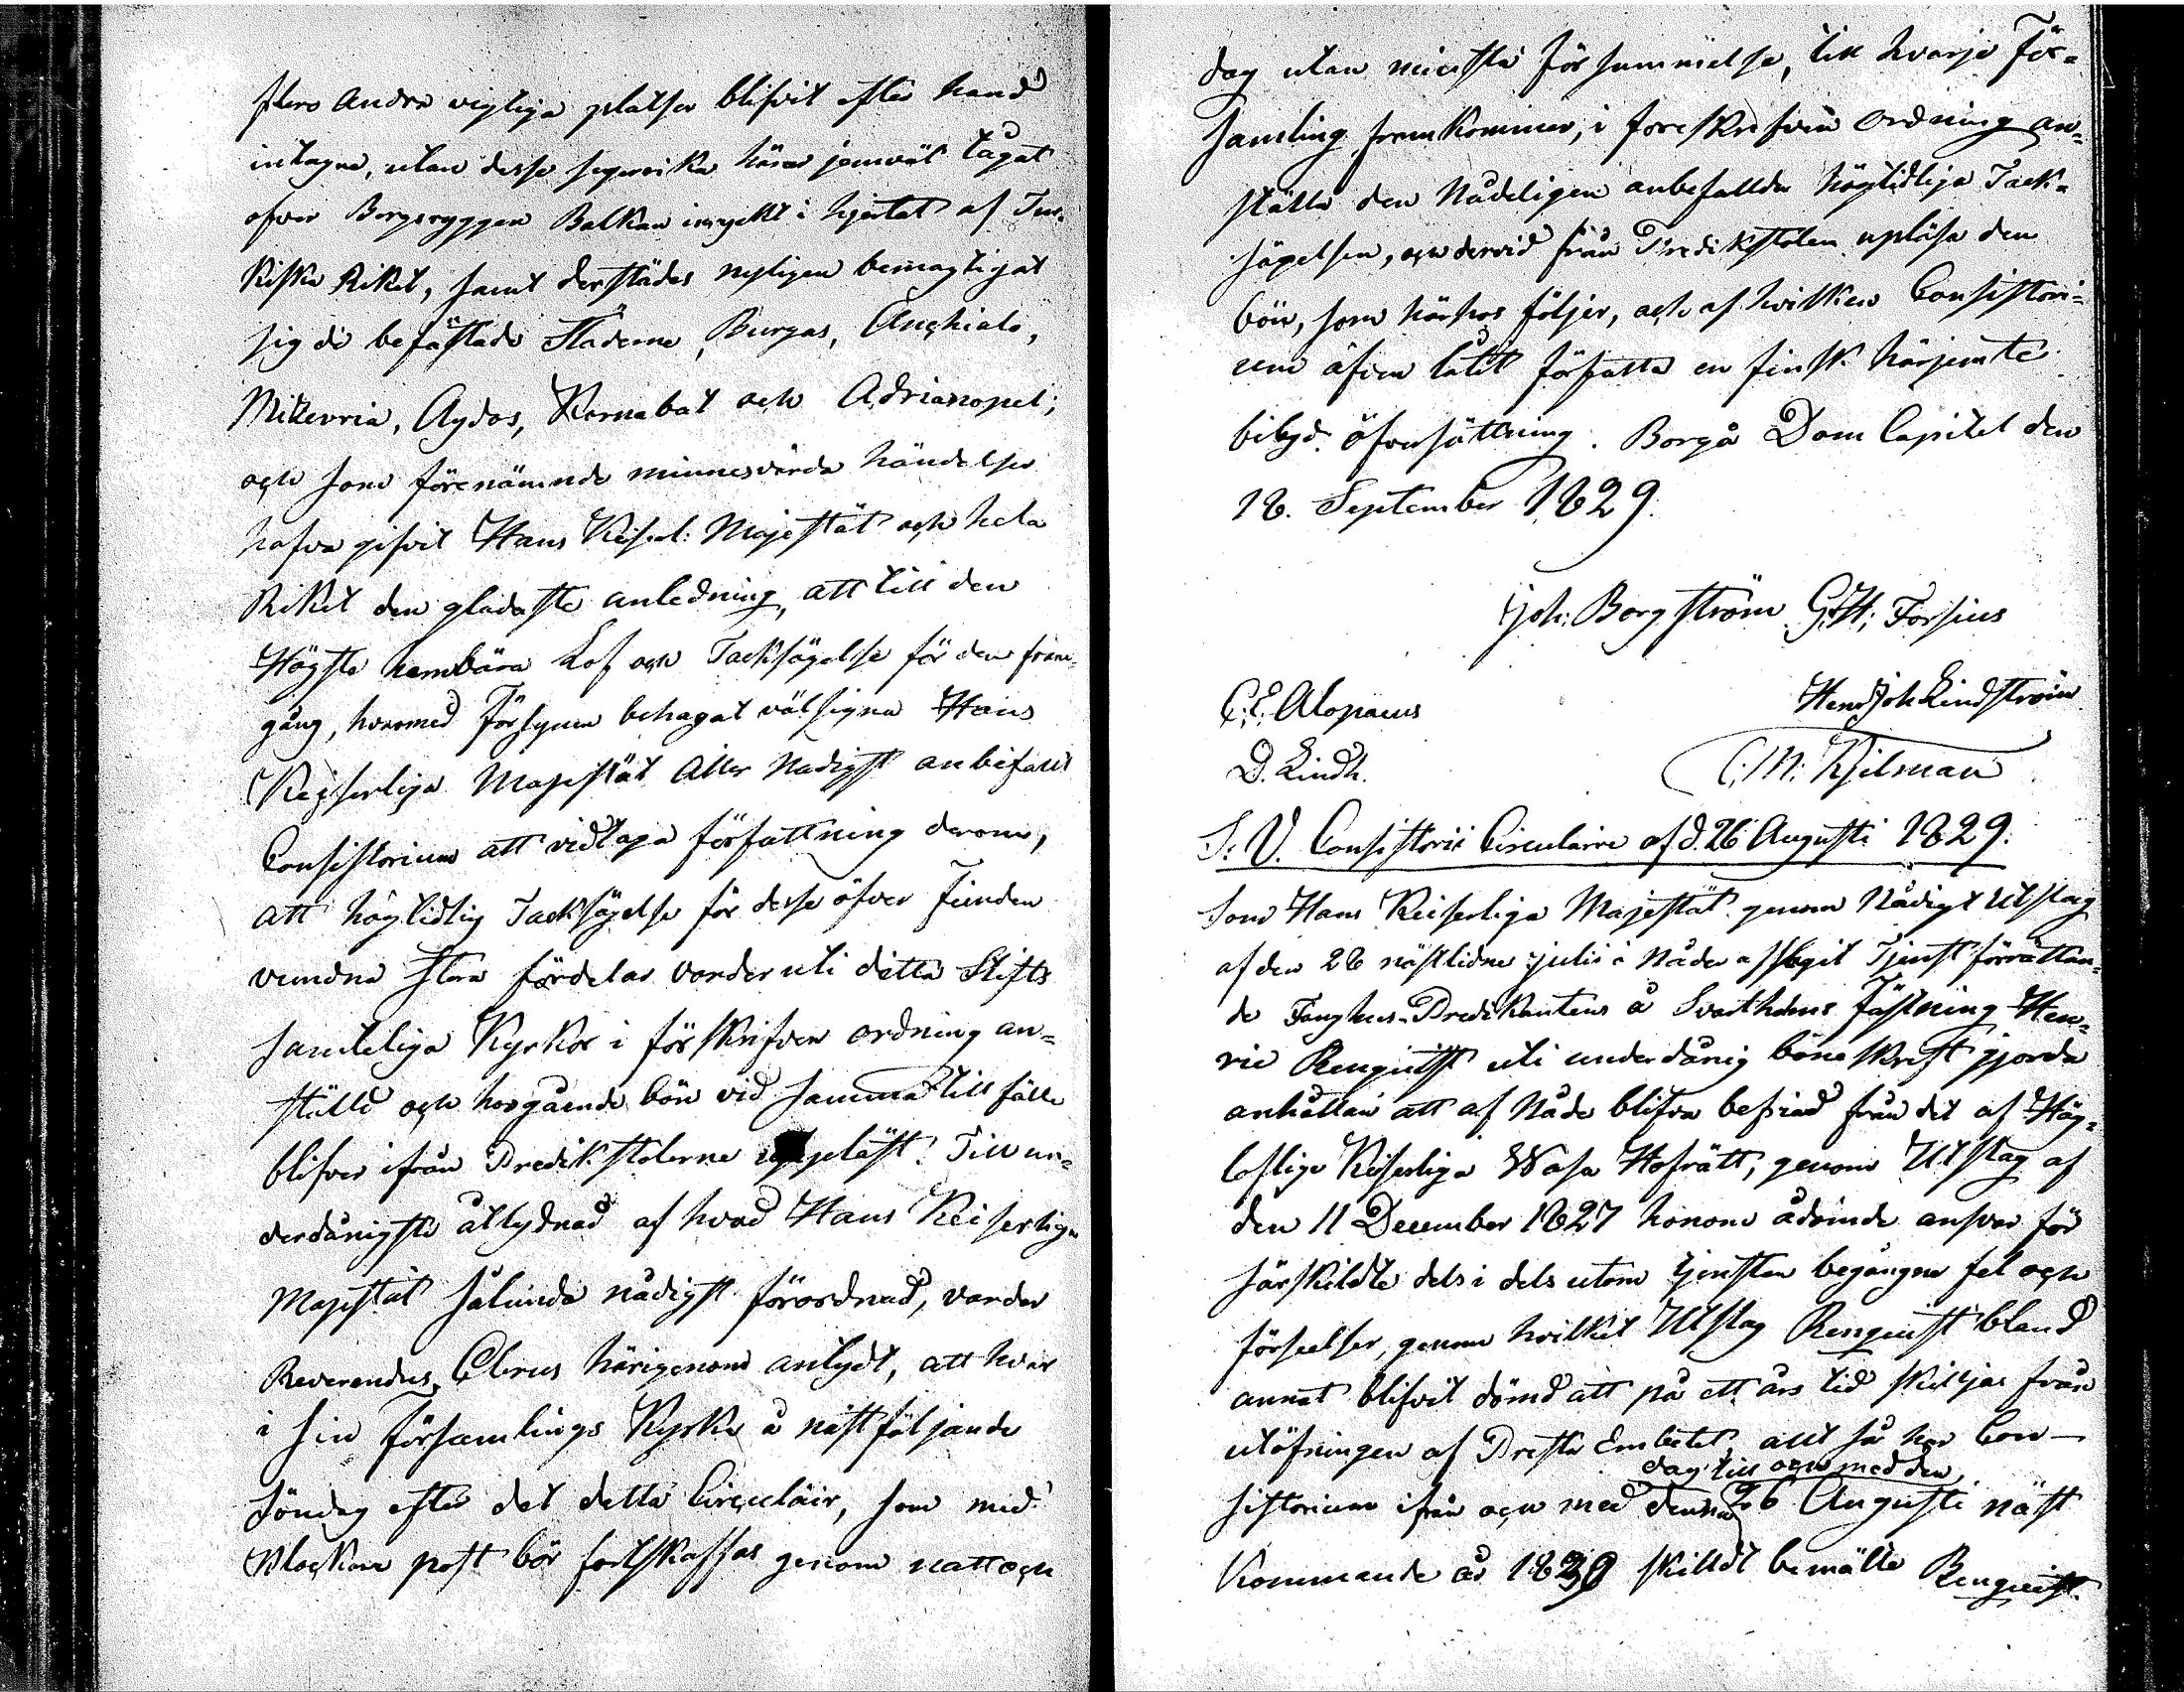 flere Andre vigtiga platser blifvit efter hand
intagne, utan desse segerrika härar jemväl tågat
öfver Bergsryggen Balkan inryckt i hjertat af Tur-
kiska Riket, samt derstädes nyligen bemägtigat
sig de befästade Städerne, Burgas, Anchialo,
Missevria, Aydos, Karnabat och Adrianopel;
och som förenämnde minnesvärda händelser
hafva gifvit Hans Keiserl: Majestät och hela
Riket den gladaste anledning, att till den
Högste hembära Lof och Tacksägelse för den fram-
gång, hvarmed Försynen behagat välsigna Hans
Kejserliga Majestät Aller Nådigst anbefallt
Consistorium att vidtaga författning derom,
att högtidlig Tacksägelse för desse öfver fienden
vundna stora fördelar varder uti detta Stifts
samteliga Kyrkor i förskrifven ordning an-
ställd och hosgående bön vid samma tillfälle
blifver ifrån Predikstolarne uppläst. Till un-
derdånigste åtlydnad af hvad Hans Keiserliga
Majestät sålunda nådigst förordnad, varder
Reverendus Clerus härigenom antydt, att hvar
i sin församlings Kyrka å nästföljande
Söndag efter det detta Circulair, som med
Klockare post bör fortskaffas genom natt och
dag utan minsta försummelse, till hvarje För-
samling framkommer, i föreskrefven ordning an-
ställa den Nådeligen anbefallda högtidliga Tack-
sägelsen, och dervid från Predikstolen upläsa den
bön, som härhos följer, och af hvilken Consistori-
um äfven låtit författa en finsk härjemte
bilagd öfversättning. Borgå Dom Capitel den
18. September 1829.
Joh: Borgström G: H: Forsius
C: E: Alopaeus Henr Joh Lindström
D. Lindh. C: M: Kjelman
S: V. Consistorii Circulaire af d. 26 Augusti 1829.
Som Hans Keiserliga Majestät genom Nådigt Utslag
af den 28 nästlidne julii i Nåder afslagit Tjenstförrättan-
de Fånghus-Predikantens å Svartholms Fästning Hen-
ric Renquist uti underdånig böneskrift gjorda
anhållan att af Nåde blifva befriad från det af Hög-
loflige Keiserliga Wasa Hofrätt, genom Utslag af
den 11 December 1827 honom ådömde ansvar för
särskildte dels i dels utom tjensten begångne fel och
förseelser, genom hvilket Utslag Renquist bland
annat blifvit dömd att på ett års tid skiljas från
utöfningen af Presta Embetet, allt så har Con-
dag till och med den
sistorium ifrån och med denna 26 Augusti näst
kommande år 1830 skilldt bemälte Renquist.